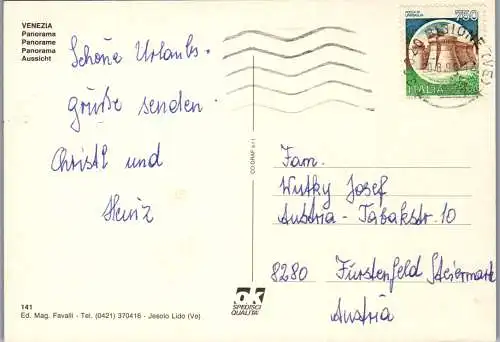 VENEZIA
Panorama
Panorame
Panorama
Aussicht
Schöne Urlaubs-
grüße senden
Christl und
Heinz
CO.GRAF s.r.l.
750
ITALIA
LIDO
Fam.
Wutky Josef
Austria-Tabakstr. 10
8280 Fürstenfeld Steiermark
Austria
OK
SPEDISCI
QUALITÀ
141
Ed. Mag. Favalli - Tel. (0421) 370416 - Jesolo Lido (Ve)